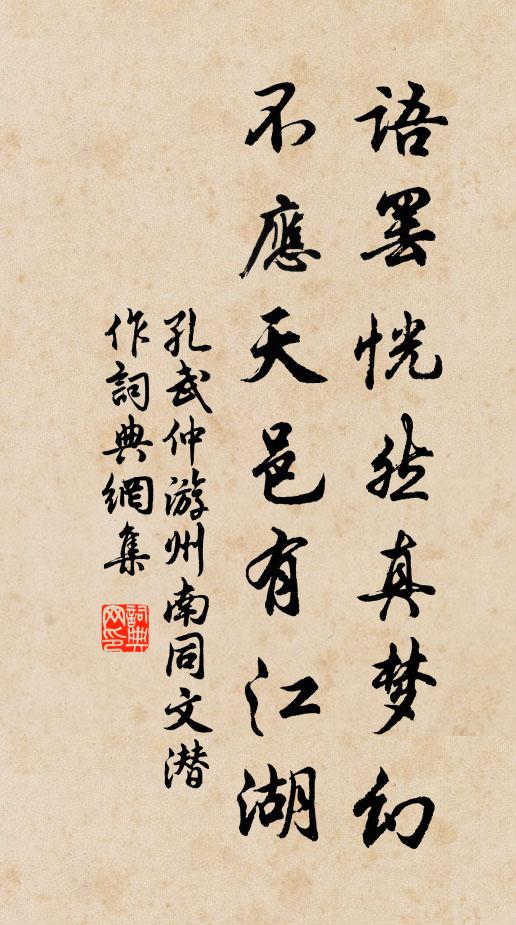 語罢恍然真梦幻
不應天邑有江湖
孔武仲游州南同文潜
作詞典網集
詞典
网印